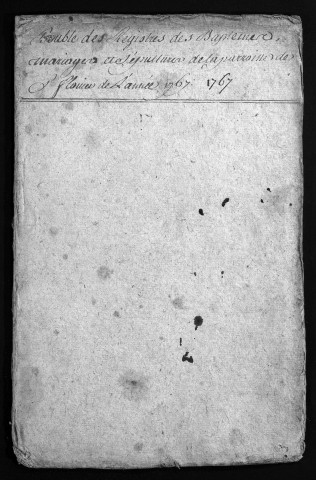 Double des Registres des Baptemes,
mariages et sepultures de la parroisse de
St Flour de L'année 1767. 1767